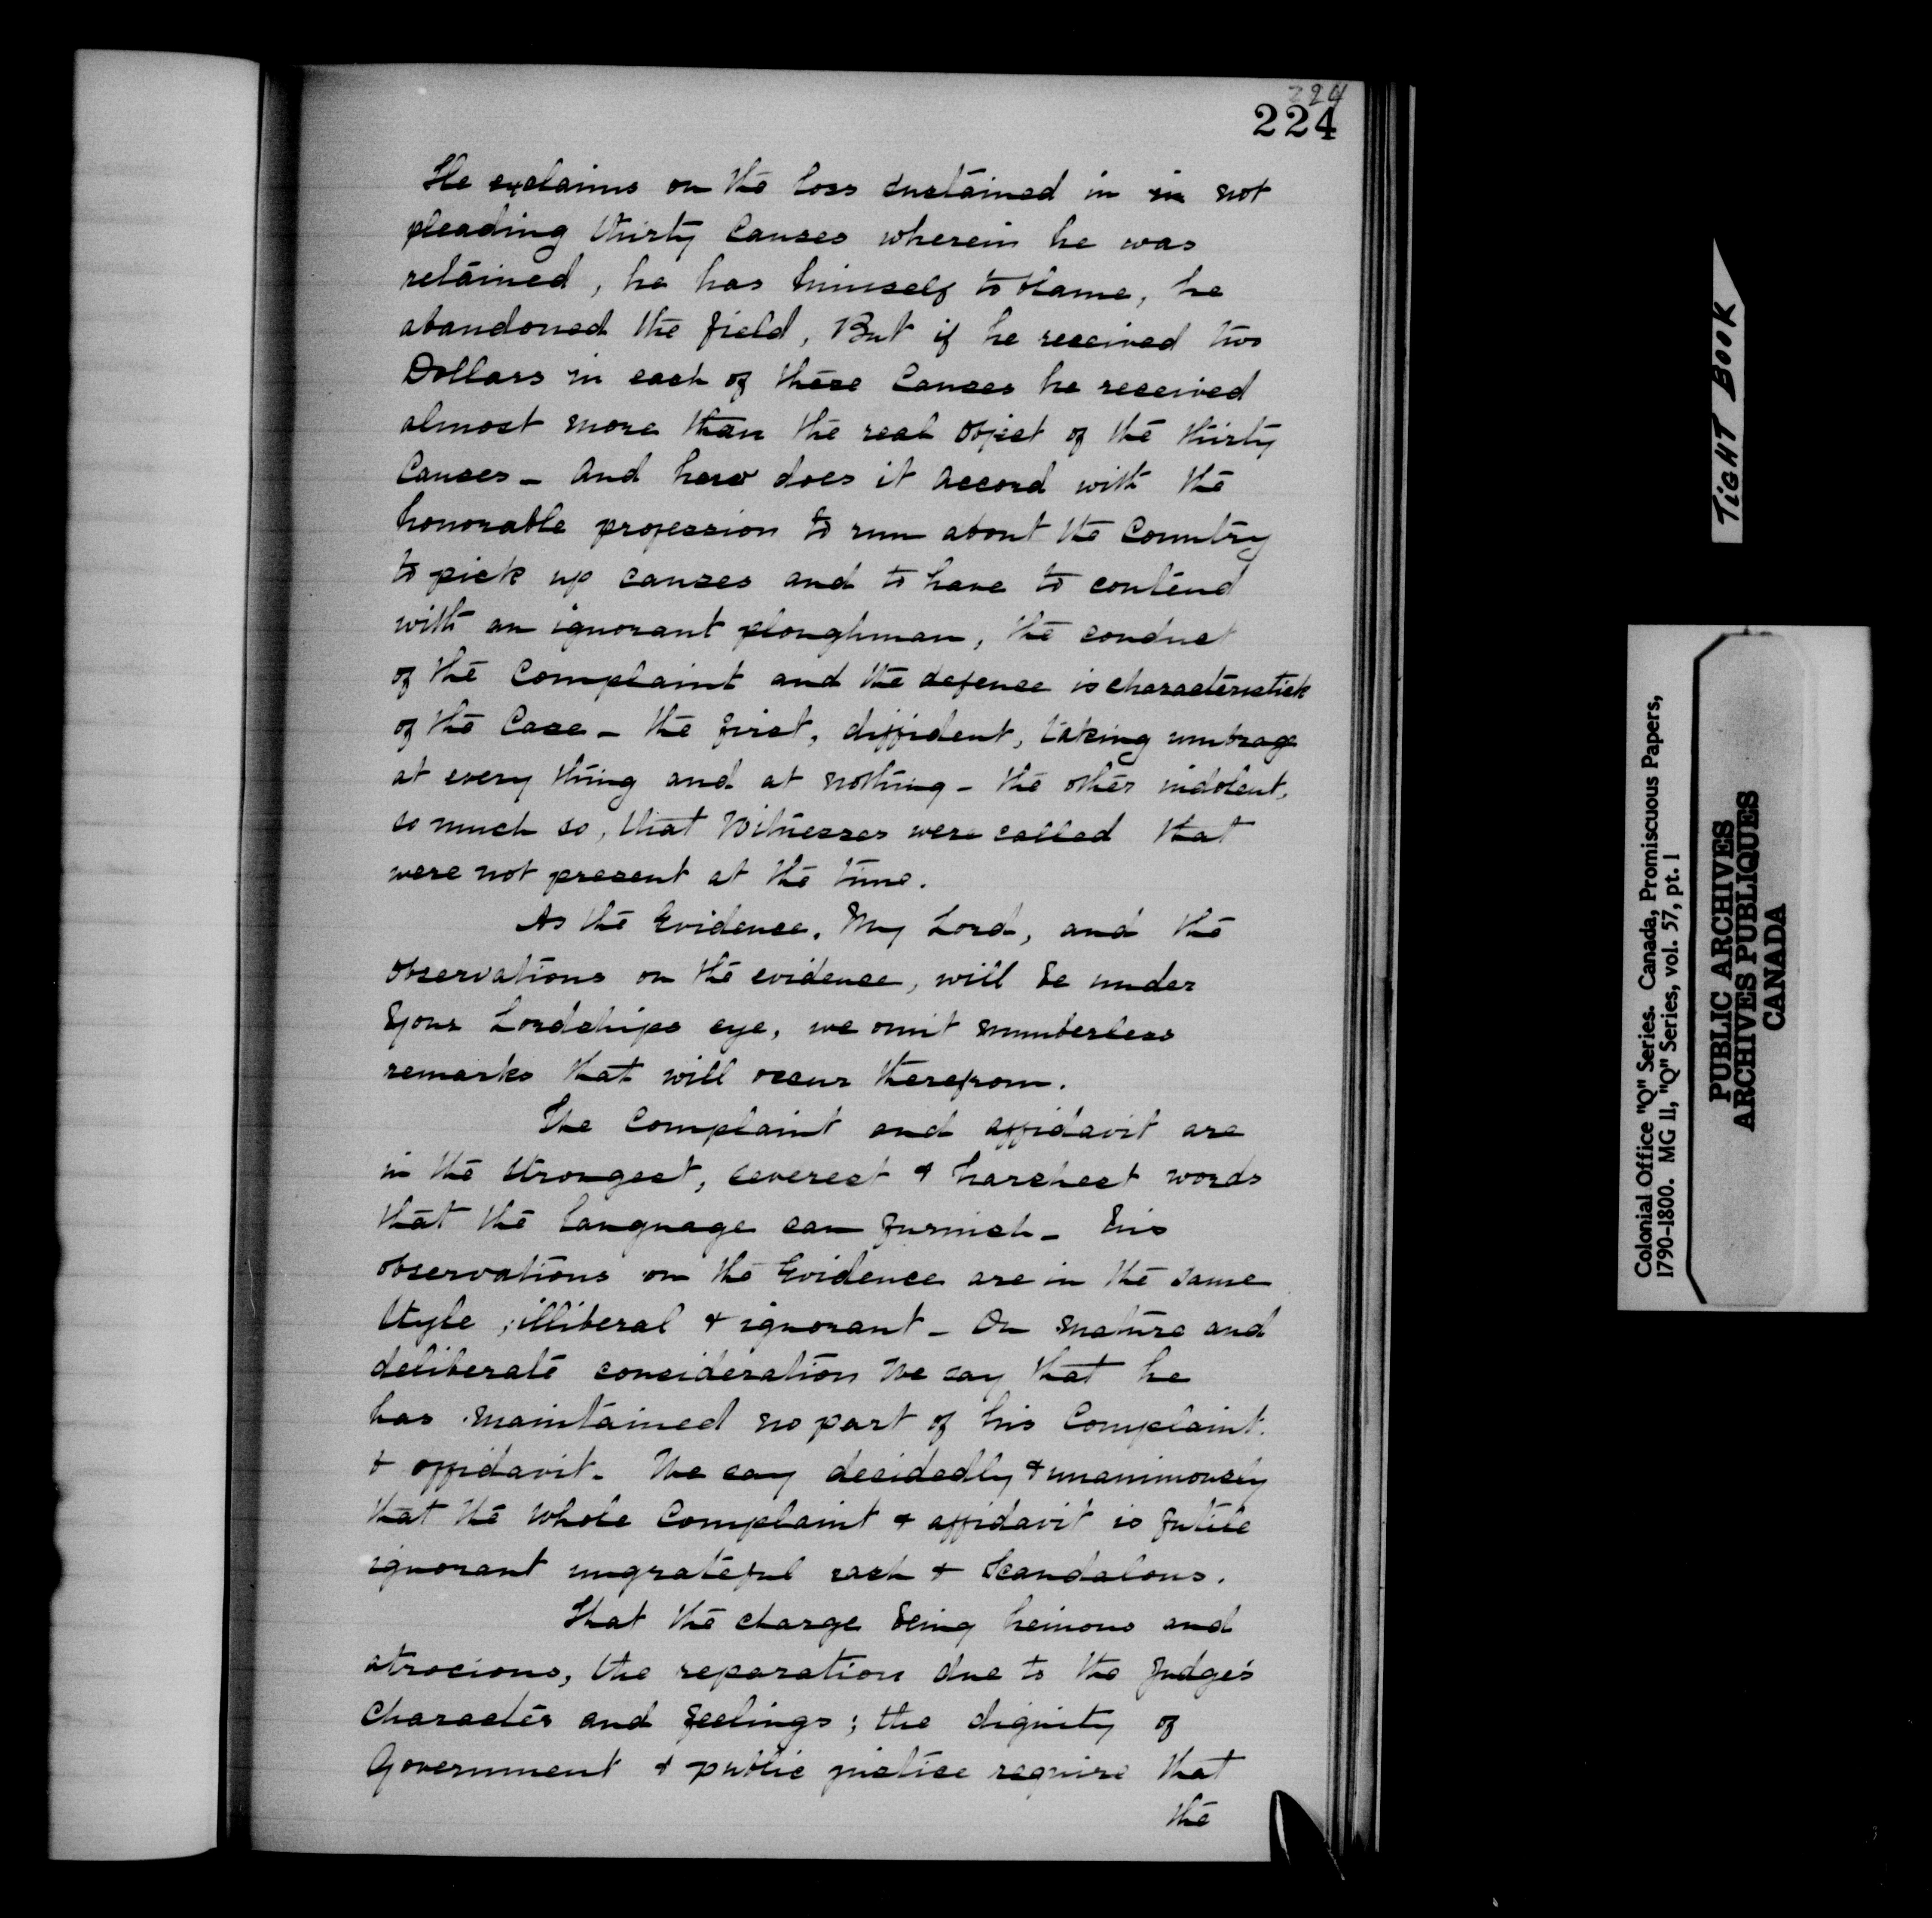 224
224
He exclaims on the loss sustained in in not
pleading thirty Causes wherein he was
retained, he has himself to blame, he
abandoned the field, But if he received two
Dollars in each of these Causes he received
almost more than the real object of the thirty
Causes - And how does it accord with the
honorable profession to run about the Country
to pick up causes and to have to contend
with an ignorant ploughman, the conduct
of the Complaint and the defence is characteristick
of the Case - the first, diffident, taking umbrage
at every thing and at nothing - the other indolent,
so much so, that Witnesses were called that
were not present at the time.
As the Evidence, My Lord, and the
observations on the evidence, will be under
Your Lordships eye, we omit numberless
remarks that will occur therefrom.
The Complaint and affidavit are
in the strongest, severest & harshest words
that the language can furnish - his
observations on the Evidence are in the same
Style, illiberal & ignorant - On mature and
deliberate consideration We say that he
has maintained no part of his Complaint
& affidavit. We say decidedly & unanimously
that the whole Complaint & affidavit is futile
ignorant ungrateful rash & Scandalous.
That the charge being heinous and
atrocious, the reparation due to the Judge's
Character and feelings; the dignity of
Government & public justice require that
the
TIGHT BOOK
Colonial Office "Q" Series. Canada, Promiscuous Papers,
1790-1800. MG 11, "Q" Series, vol. 57, pt. 1
PUBLIC ARCHIVES
ARCHIVES PUBLIQUES
CANADA